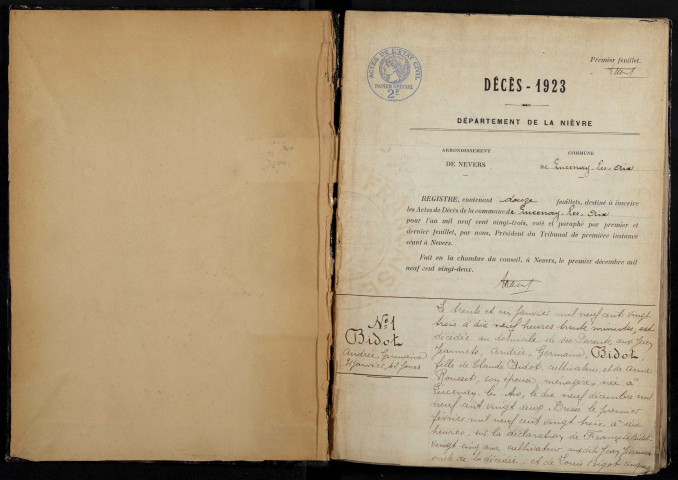 Premier feuillet.
ACTES DE L'ÉTAT CIVIL
PAPIER SPÉCIAL
2F
DÉCÈS - 1923
DÉPARTEMENT DE LA NIÈVRE
ARRONDISSEMENT
DE NEVERS
COMMUNE
de Lucenay-les-Aix
REGISTRE, contenant douze feuillets, destiné à inscrire
les Actes de Décès de la commune de Lucenay-les-Aix
pour l'an mil neuf cent vingt-trois, coté et paraphé par premier et
dernier feuillet, par nous, Président du Tribunal de première instance
séant à Nevers.
Fait en la chambre du conseil, à Nevers, le premier décembre mil
neuf cent vingt-deux.
No 1
Bidot
Andrée, Germaine
31 janvier, 43 jours
Le trente et un janvier mil neuf cent vingt
trois à dix neuf heures trente minutes, est
décédée au domicile de ses parents, aux
Jeannets, Andrée, Germaine, Bidot
fille de Claude Bidot, cultivateur, et de
Rousset, son épouse, ménagère, née à
Lucenay-les-Aix, le dix neuf décembre mil
neuf cent vingt deux. Dressé le premier
février mil neuf cent vingt trois, à dix
heures, sur la déclaration de François Bidot
vingt cinq ans cultivateur,
oncle de la décédée, et de Louis Bigot